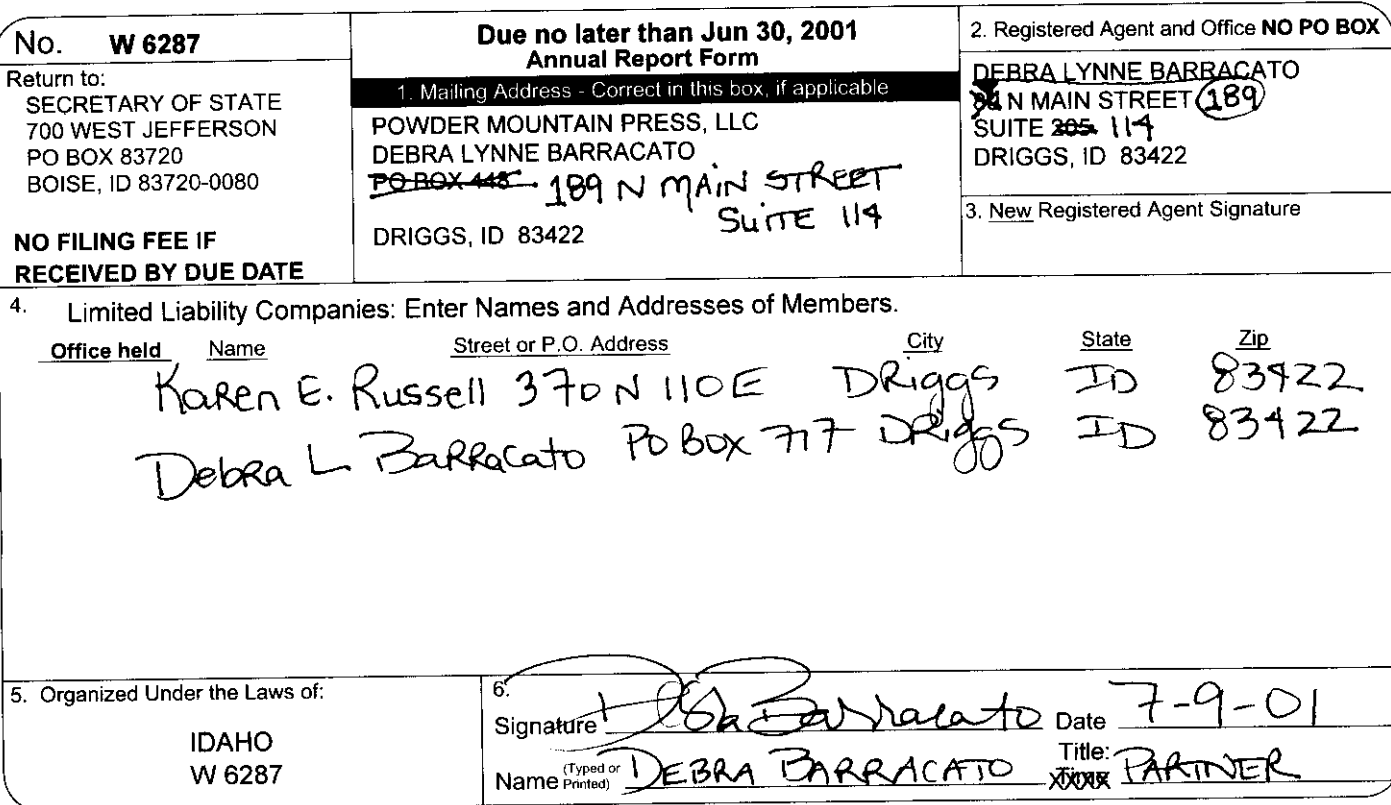 No. W 6287
Return to:
SECRETARY OF STATE
700 WEST JEFFERSON
PO BOX 83720
BOISE, ID 83720-0080
NO FILING FEE IF
RECEIVED BY DUE DATE
Due no later than Jun 30, 2001
Annual Report Form
1. Mailing Address - Correct in this box, if applicable
POWDER MOUNTAIN PRESS, LLC
DEBRA LYNNE BARRACATO
PO BOX 448 189 N MAIN STREET
SUITE 114
DRIGGS, ID 83422
2. Registered Agent and Office NO PO BOX
DEBRA LYNNE BARRACATO
N MAIN STREET 189
SUITE 205 114
DRIGGS, ID 83422
3. New Registered Agent Signature
4. Limited Liability Companies: Enter Names and Addresses of Members.
Office held Name Street or P.O. Address City State Zip
Karen E. Russell 370 N 110 E DRiggs ID 83422
Debra L Barracato PO Box 717 DRiggs ID 83422
5. Organized Under the Laws of:
IDAHO
W 6287
6.
Signature Debra Barracato Date 7-9-01
Name (Typed or Printed) DEBRA BARRACATO Title: PARTNER